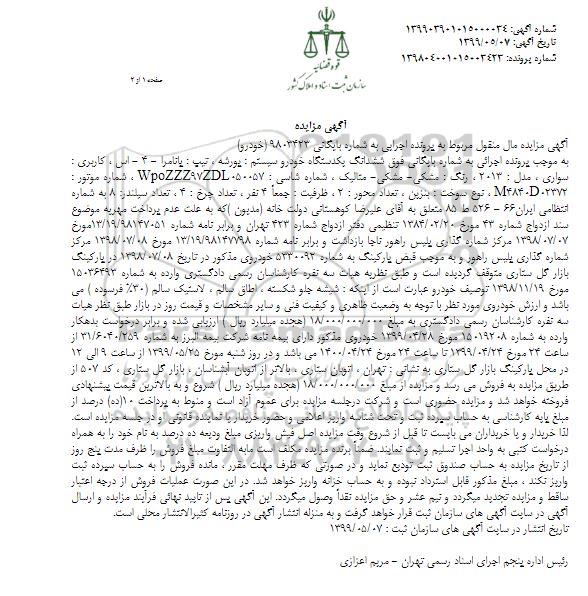 شماره آگهی: ۱۳۹۹۰۳۹۰۱۰۱۵۰۰۰۰۳۴
تاریخ آگهی: ۱۳۹۹/۰۵/۰۷
شماره پرونده: ۱۳۹۸۰۴۰۰۱۰۱۵۰۰۳۴۲۳
قوه قضاییه
سازمان ثبت اسناد و املاک کشور
صفحه ۱ از ۲
آگهی مزایده
آگهی مزایده مال منقول مربوط به پرونده اجرایی به شماره بایگانی ۹۸۰۳۴۲۳ (خودرو)
به موجب پرونده اجرائی به شماره بایگانی فوق ششدانگ یکدستگاه خودرو سیستم : پورشه ، تیپ : پانامرا – ۴ – اس ، کاربری :
سواری ، مدل : ۲۰۱۳ ، رنگ : مشکی – مشکی- متالیک ، شماره شاسی : WpoZZZ۹۷ZDL۰۵۰۰۵۷ ، شماره موتور :
M۴۸۴۰D۰۲۳۷۲ ، نوع سوخت : بنزین ، تعداد محور : ۲ ، ظرفیت : جمعاً ۴ نفر ، تعداد چرخ : ۴ ، تعداد سیلندر: ۸ به شماره
انتظامی ایران۶۶ – ۵۲۶ ط ۸۵ متعلق به آقای علیرضا کوهستانی دولت خانه (مدیون )که به علت عدم پرداخت مهریه موضوع
سند ازدواج شماره ۴۳ مورخ ۱۳۸۴/۰۲/۲۰ تنظیمی دفتر ازدواج شماره ۴۲۳ تهران و برابر نامه شماره ۱۳/۱۹/۹۸۱۴۷۰۵۱مورخ
۱۳۹۸/۰۷/۰۷ مرکز شماره گذاری پلیس راهور ناجا بازداشت و برابر نامه شماره ۱۳/۱۹/۹۸۱۴۷۷۹۸ مورخ ۱۳۹۸/۰۷/۰۸ مرکز
شماره گذاری پلیس راهور و به موجب قبض پارکینگ به شماره ۵۳۳۰۰۹۲ خودروی مذکور در تاریخ ۱۳۹۸/۰۷/۰۸ در پارکینگ
بازار گل ستاری متوقف گردیده است و طبق نظریه هیات سه نفره کارشناسان رسمی دادگستری وارده به شماره ۱۵۰۳۶۴۹۳
مورخ ۱۳۹۸/۱۱/۱۹ توصیف خودرو عبارت است از اینکه : شیشه جلو شکسته ، اطاق سالم ، لاستیک سالم (۳۰٪ فرسوده ) می
باشد و ارزش خودروی مورد نظر با توجه به وضعیت ظاهری و کیفیت فنی و سایر مشخصات و قیمت روز در بازار طبق نظر هیات
سه نفره کارشناسان رسمی دادگستری به مبلغ ۱۸/۰۰۰/۰۰۰/۰۰۰ (هجده میلیارد ریال ) ارزیابی شده و برابر درخواست بدهکار
وارده به شماره ۱۵۰۱۹۲۰۸ مورخ ۱۳۹۹/۰۴/۲۸ خودروی مذکور دارای بیمه نامه شرکت بیمه البرز به شماره ۳۱/۶۰۴۰/۲۵۹ از
ساعت ۲۴ مورخ ۱۳۹۹/۰۴/۲۴ تا ساعت ۲۴ مورخ ۱۴۰۰/۰۴/۲۴ می باشد و در روز شنبه مورخ ۱۳۹۹/۰۵/۲۵ از ساعت ۹ الی ۱۲
در محل پارکینگ بازار گل ستاری به نشانی : تهران ، اتوبان ستاری ، بالاتر از اتوبان آبشناسان ، بازار گل ستاری ، کد ۵۰۷ از
طریق مزایده به فروش می رسد و مزایده از مبلغ ۱۸/۰۰۰/۰۰۰/۰۰۰ (هجده میلیارد ریال ) شروع و به بالاترین قیمت پیشنهادی
فروخته خواهد شد و مزایده حضوری است و شرکت درجلسه مزایده برای عموم آزاد است و منوط به پرداخت ۱۰(ده) درصد از
مبلغ پایه کارشناسی به حساب سپرده ثبت و تحت شناسه واریز اعلامی و حضور خریدار یا نماینده قانونی او در جلسه مزایده است.
لذا خریدار و یا خریداران می بایست تا قبل از شروع وقت مزایده اصل فیش واریزی مبلغ ودیعه ده درصد به نام خود را به همراه
درخواست کتبی به واحد اجرا تسلیم و ثبت نمایند. ضمناً برنده مزایده مکلف است مابه التفاوت مبلغ فروش را ظرف مدت پنج روز
از تاریخ مزایده به حساب صندوق ثبت تودیع نماید و در صورتی که ظرف مهلت مقرر ، مانده فروش را به حساب سپرده ثبت
واریز نکند ، مبلغ مذکور قابل استرداد نبوده و به حساب خزانه واریز خواهد شد. در این صورت عملیات فروش از درجه اعتبار
ساقط و مزایده تجدید میگردد و نیم عشر و حق مزایده نقداً وصول میگردد. این آگهی پس از تایید نهائی فرآیند مزایده و ارسال
آگهی در سایت آگهی های سازمان ثبت قرار خواهد گرفت و به منزله انتشار آگهی در روزنامه کثیرالانتشار محلی است.
تاریخ انتشار در سایت آگهی های سازمان ثبت : ۱۳۹۹/۰۵/۰۷
رئیس اداره پنجم اجرای اسناد رسمی تهران – مریم اعزازی